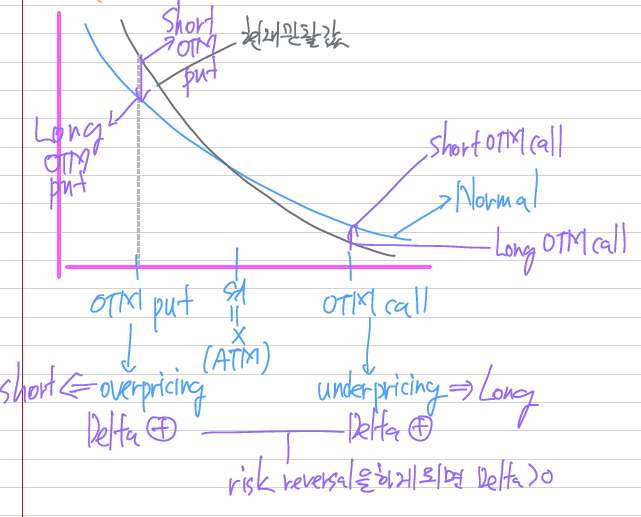 Short
OTM
put
현재 관찰값
Long
OTM
put
short OTM call
Normal
Long OTM call
OTM put
St
=
X
(ATM)
OTM call
short ⇐ overpricing
underpricing ⇒ Long
Delta ⊕
Delta ⊕
risk reversal을하게되면 Delta>0